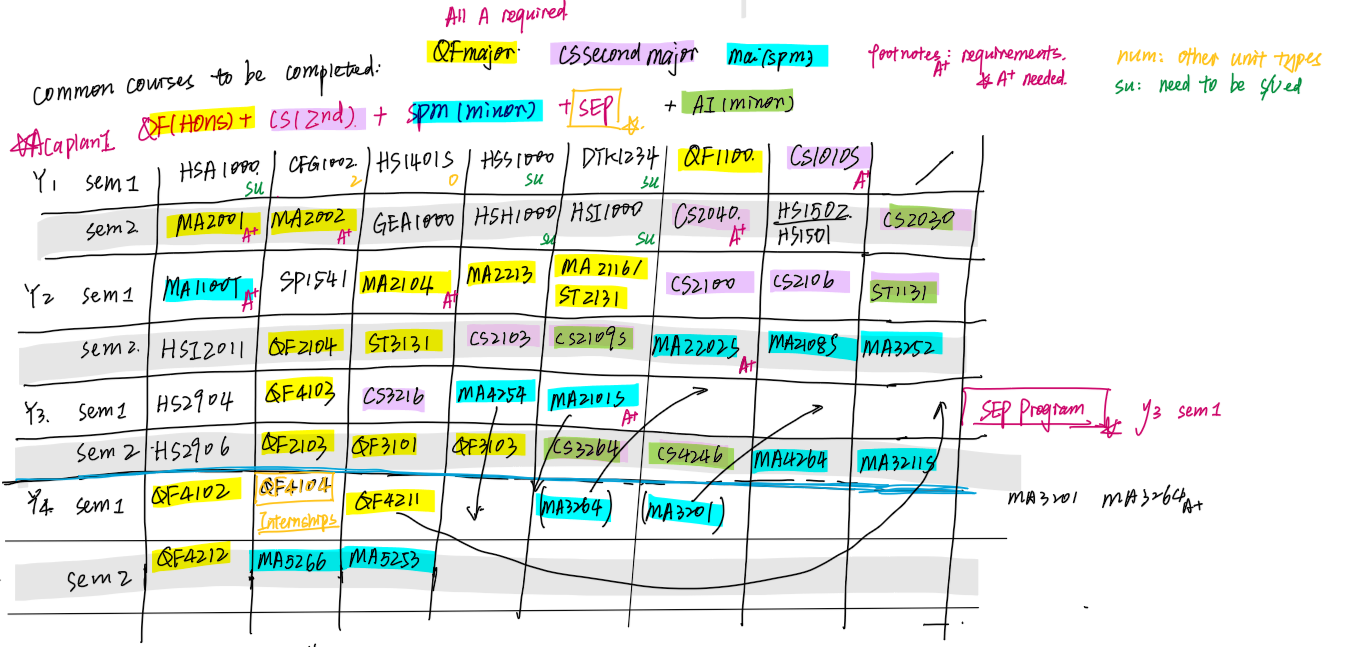 All A required
QF major CS second major ma(spm) footnotes: requirements. num: other unit types
A+
☆ A+ needed. su: need to be s/ued
common courses to be completed:
☆Acaplan1 QF(Hons) + CS(2nd). + spm(minor) + SEP + AI(minor)
Y1 sem1 HSA1000 su CFG1002 2 HS1401S 0 HSS1000 su DTK1234 su QF1100. CS1010S A+ /
sem2 MA2001 A+ MA2002 A+ GEA1000 HSH1000 su HSI1000 su CS2040. A+ HS1502 HS1501 CS2030
Y2 sem1 MA1100T A+ SP1541 MA2104 A+ MA2213 MA2116/ ST2131 CS2100 CS2106 ST1131
sem2. HSI2011 QF2104 ST3131 CS2103 CS2109S MA2202S A+ MA2108S MA3252
Y3. sem1 HS2904 QF4103 CS3216 MA4254 MA2101S A+ SEP Program ☆ Y3 sem1
sem2 HS2906 QF2103 QF3101 QF3103 CS3264 CS4246 MA4264 MA3211S
Y4. sem1 QF4102 QF4104 Internships QF4211 (MA3264) (MA3201) MA3201 MA3264 A+
sem2 QF4212 MA5266 MA5253